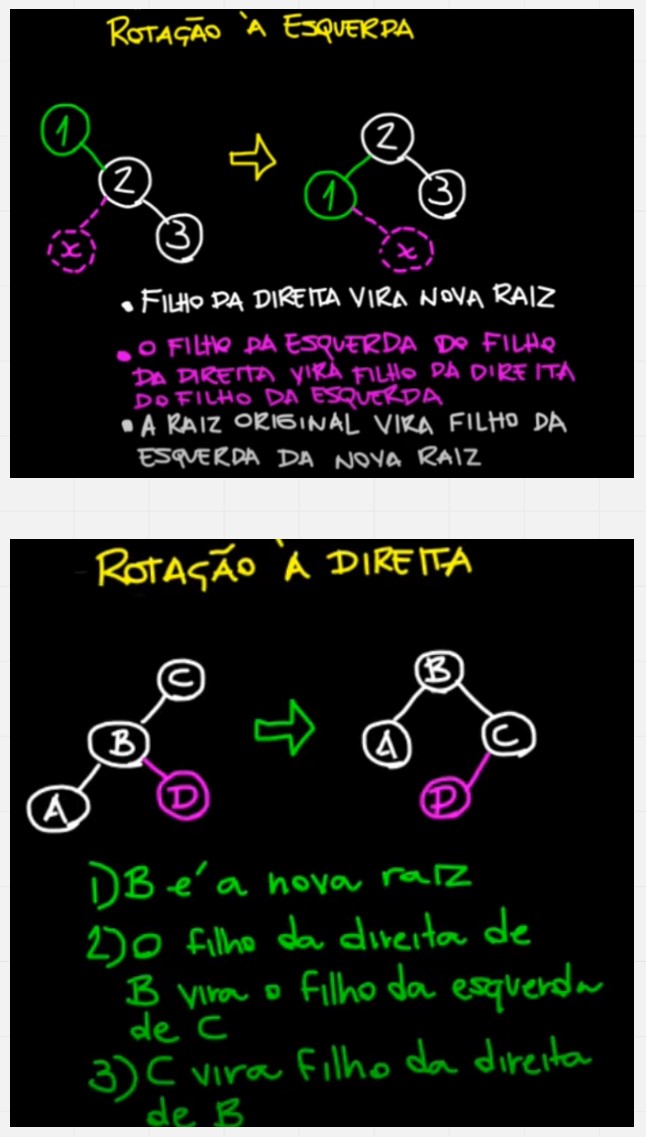 ROTAÇÃO À ESQUERDA
1
2
X
3
2
1
3
X
• FILHO DA DIREITA VIRA NOVA RAIZ
• O FILHO DA ESQUERDA DO FILHO
DA DIREITA VIRA FILHO DA DIREITA
DO FILHO DA ESQUERDA
• A RAIZ ORIGINAL VIRA FILHO DA
ESQUERDA DA NOVA RAIZ
ROTAÇÃO À DIREITA
C
B
A
D
B
A
C
D
1) B é a nova raiz
2) O filho da direita de
B vira o filho da esquerda
de C
3) C vira filho da direita
de B